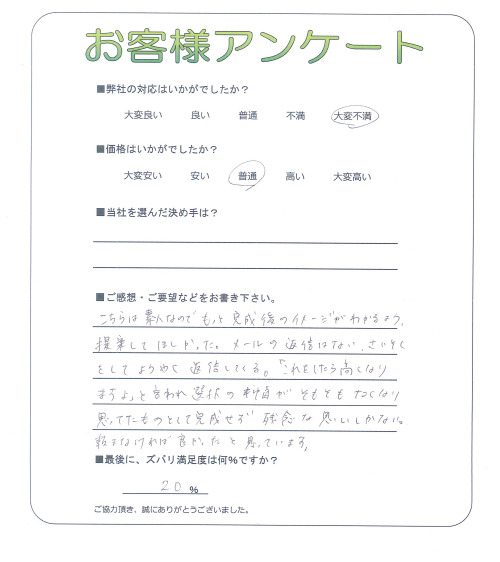 お客様アンケート
■弊社の対応はいかがでしたか？
大変良い 良い 普通 不満 大変不満
■価格はいかがでしたか？
大変安い 安い 普通 高い 大変高い
■当社を選んだ決め手は？
■ご感想・ご要望などをお書き下さい。
こちらは素人なのでもっと完成後のイメージがわかるよう、
提案してほしかった。メールの返信はない、さいそく
をしてようやく返信してくる。「これをしたら高くなり
ますよ」と言われ選択の余地がそもそもなくなり
思ってたものとして完成せず残念な思いしかない。
頼まなければ良かったと思っています。
■最後に、ズバリ満足度は何%ですか？
20 %
ご協力頂き、誠にありがとうございました。